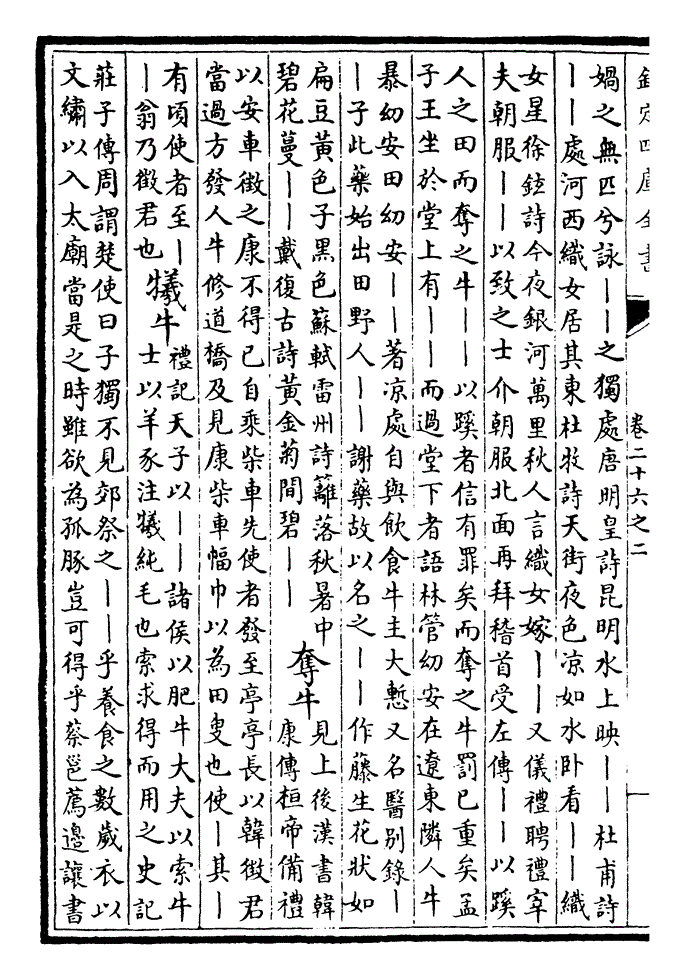 欽定四庫全書
卷二十六之二
媧之無匹兮詠丨丨之獨處唐明皇詩昆明水上映丨丨杜甫詩
丨丨處河西織女居其東杜牧詩天街夜色凉如水卧看丨丨織
女星徐鉉詩今夜銀河萬里秋人言織女嫁丨丨又儀禮聘禮宰
夫朝服丨丨以致之士介朝服北面再拜稽首受左傳丨丨以蹊
人之田而奪之牛丨丨以蹊者信有罪矣而奪之牛罰已重矣孟
子王坐於堂上有丨丨而過堂下者語林管幼安在遼東隣人牛
暴幼安田幼安丨丨著凉處自與飲食牛主大慙又名醫别錄丨
丨子此藥始出田野人丨丨謝藥故以名之丨丨作藤生花狀如
扁豆黃色子黑色蘇軾雷州詩籬落秋暑中
碧花蔓丨丨戴復古詩黃金菊間碧丨丨
奪牛
見上後漢書韓
康傳桓帝備禮
以安車徵之康不得已自乘柴車先使者發至亭亭長以韓徵君
當過方發人牛修道橋及見康柴車幅巾以為田叟也使丨其丨
有頃使者至丨
丨翁乃徵君也
犧牛
禮記天子以丨丨諸侯以肥牛大夫以索牛
士以羊豕注犧純毛也索求得而用之史記
莊子傳周謂楚使曰子獨不見郊祭之丨丨乎養食之數歲衣以
文繡以入太廟當是之時雖欲為孤豚豈可得乎蔡邕薦邊讓書